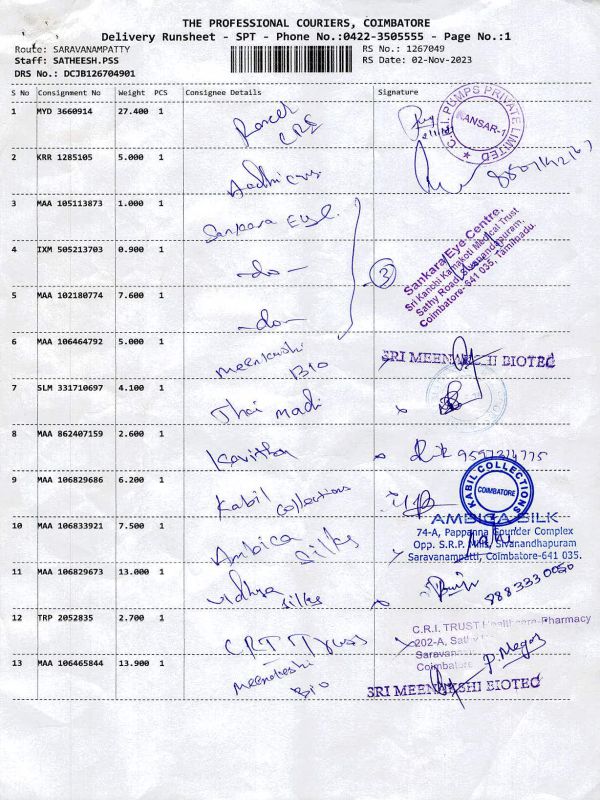 THE PROFESSIONAL COURIERS, COIMBATORE
Delivery Runsheet - SPT - Phone No.:0422-3505555 - Page No.:1
Route: SARAVANAMPATTY
RS No.: 1267049
Staff: SATHEESH.PSS
RS Date: 02-Nov-2023
DRS No.: DCJB126704901
S No Consignment No Weight PCS Consignee Details Signature
1 MYD 3660914 27.400 1 Parcel
CRI
C.R.I. PUMPS PRIVATE LIMITED
KANSAR-1
2 KRR 1285105 5.000 1
3 MAA 105113873 1.000 1 Sankara Eye.
Sankara Eye Centre,
Sri Kanchi Kamakoti Medical Trust
Sathy Road, Sivanandapuram,
Coimbatore-641 035. Tamilnadu.
4 IXM 505213703 0.900 1 -do-
3
5 MAA 102180774 7.600 1 -do-
6 MAA 106464792 5.000 1 meenakshi
Bio
SRI MEENAKSHI BIOTEC
7 SLM 331710697 4.100 1 Thai madi
8 MAA 862407159 2.600 1 Kavitha
9 MAA 106829686 6.200 1 Kabil Collections
KABIL COLLECTIONS
COIMBATORE
10 MAA 106833921 7.500 1 Ambica Silks
AMBICA SILK
74-A, Pappanna Founder Complex
Opp. S.R.P. Mills, Sivanandhapuram
Saravanampatti, Coimbatore-641 035.
11 MAA 106829673 13.000 1 Vidhya
Silks
8883330050
12 TRP 2052835 2.700 1 CRI Trust
C.R.I. TRUST Healthcare-Pharmacy
202-A,
Coimbatore
13 MAA 106465844 13.900 1
Bio
SRI MEENAKSHI BIOTEC